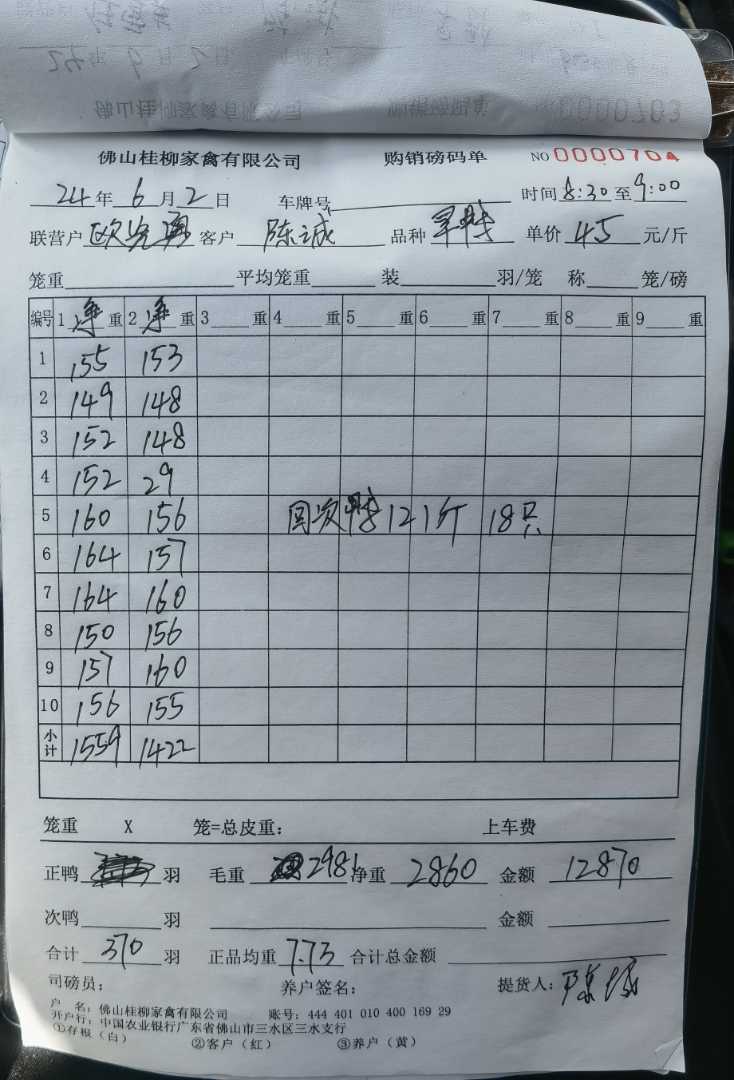 佛山桂柳家禽有限公司 购销磅码单 NO 0000704
24年6月2日 车牌号 时间8:30至9:00
联营户 客户 陈诚 品种 单价 45 元/斤
笼重 平均笼重 装 羽/笼 称 笼/磅
编号 1 净重 2 净重 3 重 4 重 5 重 6 重 7 重 8 重 9 重
1 155 153
2 149 148
3 152 148
4 152 29
5 160 156 回次鸭121斤 18只
6 164 157
7 164 160
8 150 156
9 157 160
10 156 155
小计 1559 1422
笼重 X 笼=总皮重: 上车费
正鸭 羽 毛重 2981 净重 2860 金额 12870
次鸭 羽 金额
合计 370 羽 正品均重 7.73 合计总金额
司磅员: 养户签名: 提货人: 陈诚
户 名: 佛山桂柳家禽有限公司 账号: 444 401 010 400 169 29
开户行: 中国农业银行广东省佛山市三水区三水支行
①存根(白) ②客户(红) ③养户(黄)